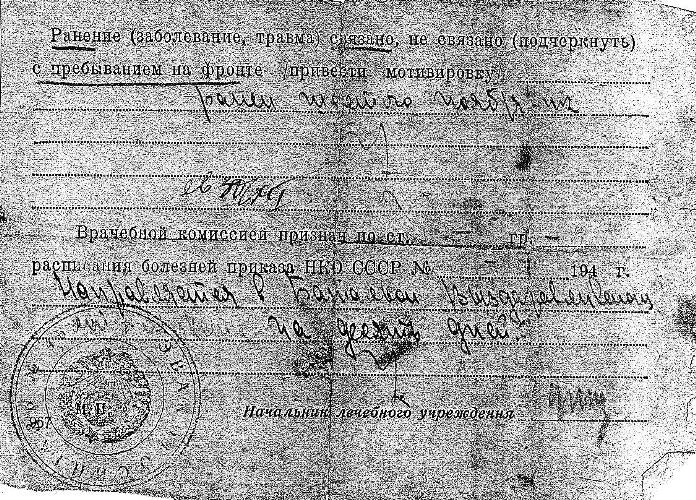 Ранение (заболевание, травма) связано, не связано (подчеркнуть)
с пребыванием на фронте (привести мотивировку)
ранен шестого ноября
Врачебной комиссией признан по ст. гр. —
расписания болезней приказа НКО СССР № 194 г.
Направляется в Батальон Выздоравливающих
на десять дней.
Начальник лечебного учреждения